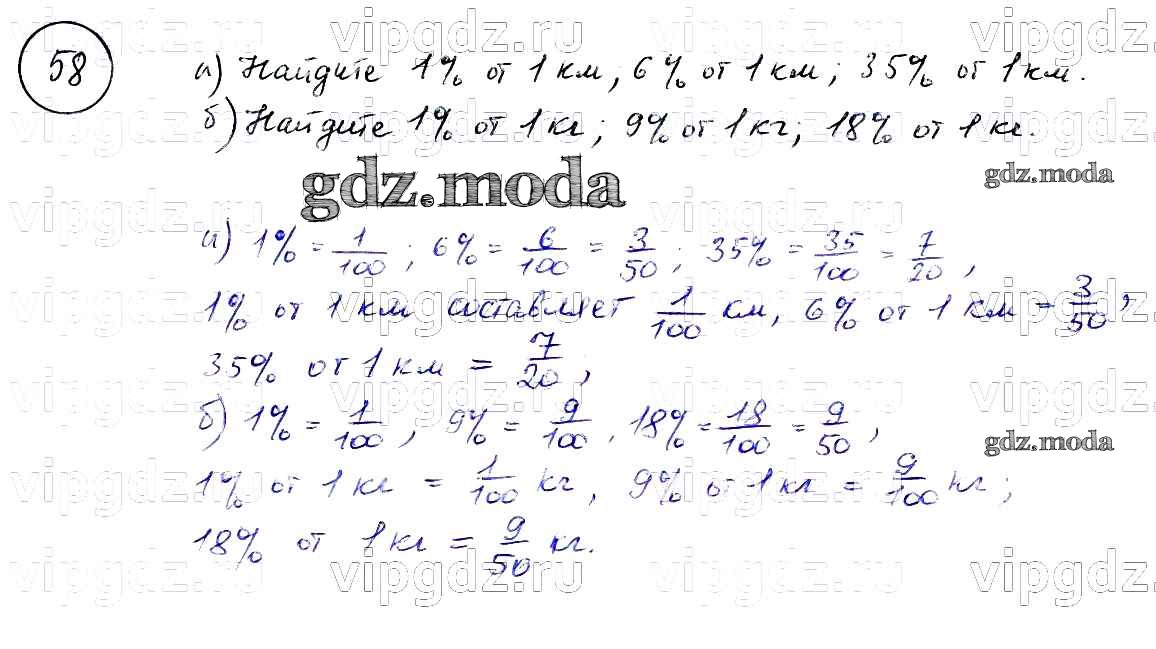 58
а) Найдите 1% от 1 км; 6% от 1 км; 35% от 1 км.
б) Найдите 1% от 1 кг; 9% от 1 кг; 18% от 1 кг.
gdz.moda
gdz.moda
а) 1% = 1/100; 6% = 6/100 = 3/50; 35% = 35/100 = 7/20,
1% от 1 км составляет 1/100 км, 6% от 1 км = 3/50,
35% от 1 км = 7/20;
б) 1% = 1/100, 9% = 9/100, 18% = 18/100 = 9/50,
gdz.moda
1% от 1 кг = 1/100 кг, 9% от 1 кг = 9/100 кг;
18% от 1 кг = 9/50 кг.
vipgdz.ru